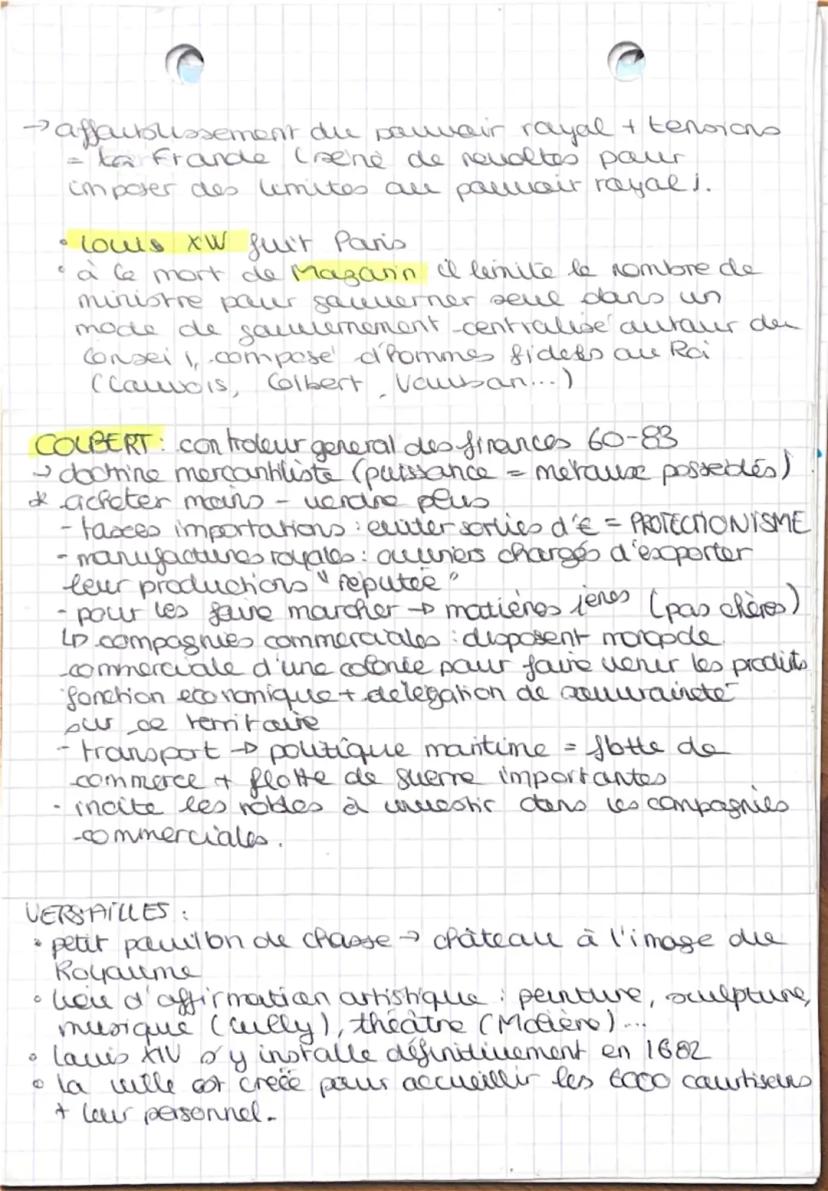 → affaiblissement du pouvoir royal + tensions
= La Fronde (série de révoltes pour
imposer des limites au pouvoir royal).
• Louis XIV fuit Paris
• à la mort de Mazarin il limite le nombre de
ministre pour gouverner seul dans un
mode de gouvernement centralisé autour du
Conseil, composé d'hommes fidels au Roi
(Louvois, Colbert, Vauban...)
COLBERT : controleur general des finances 60-83
→ doctrine mercantiliste (puissance = métaux possédés)
* acheter moins - vendre plus
- taxes importations : eviter sorties d'€ = PROTECTIONISME
- manufactures royales : ouvriers chargés d'exporter
leur productions "réputée"
- pour les faire marcher → matières 1ères (pas chères)
↳ compagnies commerciales : disposent monopole
commerciale d'une colonie pour faire venir les produits
fonction economique + délégation de souvraineté
sur ce territoire
- transport → politique maritime = flotte de
commerce + flotte de guerre importantes
- incite les nobles à investir dans les compagnies
commerciales.
VERSAILLES :
• petit pavillon de chasse → château à l'image du
Royaume
• lieu d'affirmation artistique : peinture, sculpture,
musique (Lully), théâtre (Molière)...
• Louis XIV s'y installe définitivement en 1682
• la ville est créée pour accueillir les 6000 courtisans
+ leur personnel.